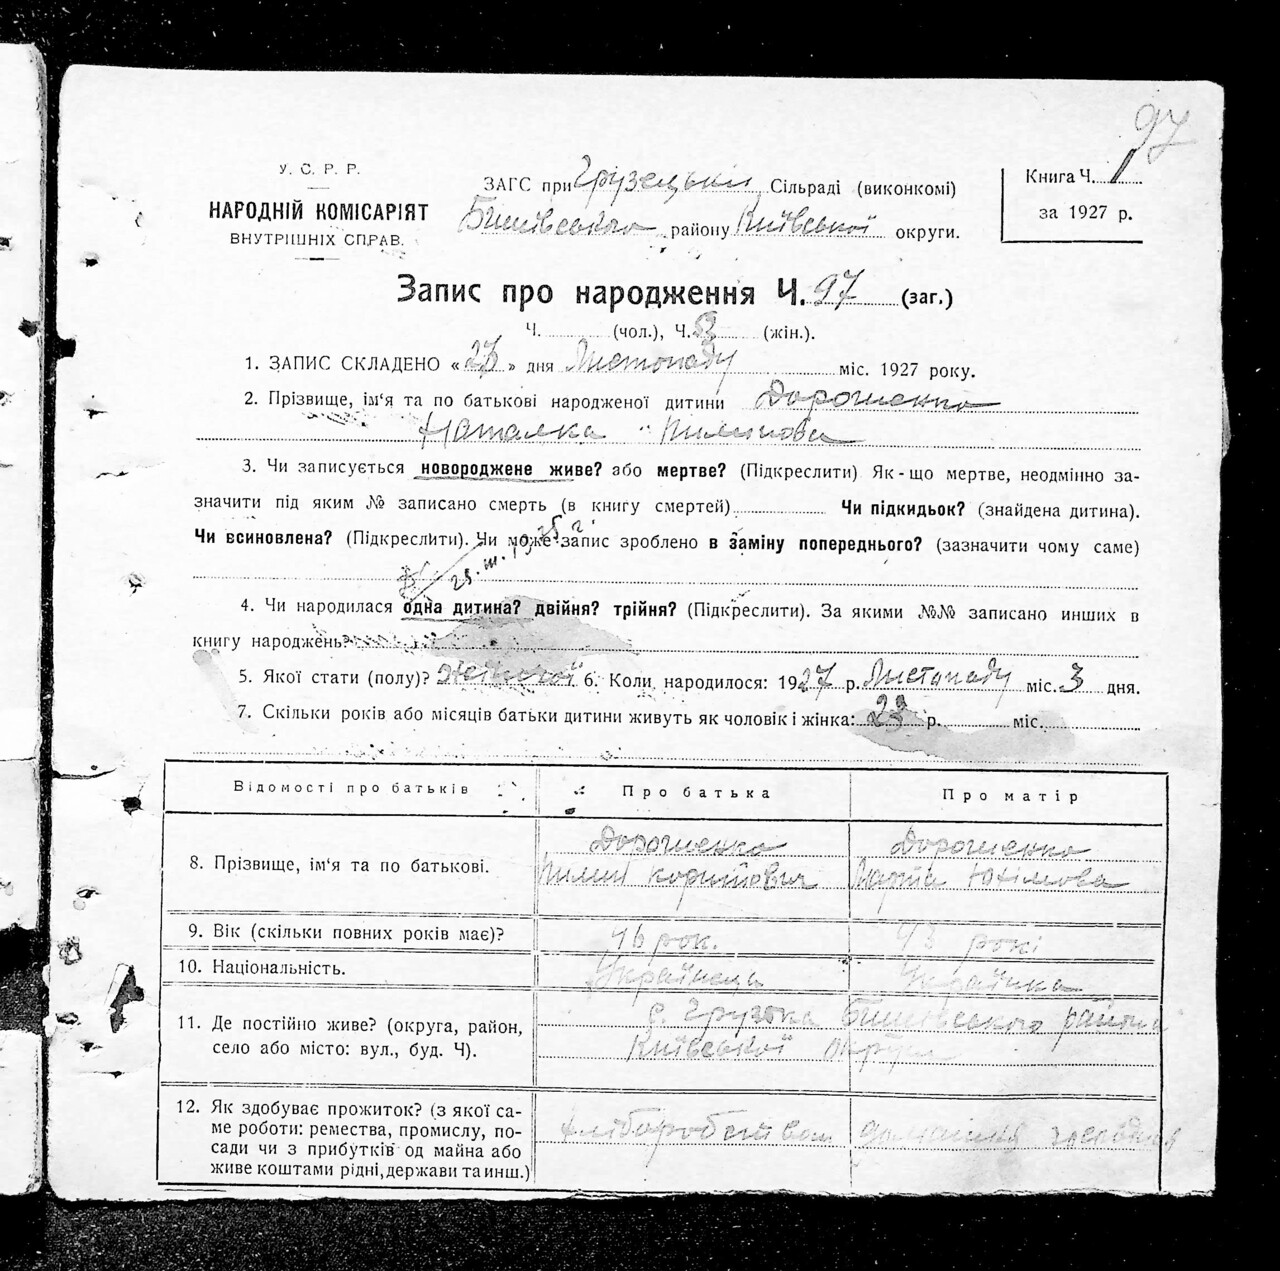 97
У. С. Р. Р.
НАРОДНІЙ КОМІСАРІЯТ
ВНУТРІШНІХ СПРАВ.
ЗАГС при Грузецькій Сільраді (виконкомі)
Бишівського району Київської округи.
Книга Ч. 1
за 1927 р.
Запис про народження Ч. 97 (заг.)
Ч. (чол.), Ч. (жін.).
1. ЗАПИС СКЛАДЕНО « » дня Листопаду міс. 1927 року.
2. Прізвище, ім‘я та по батькові народженої дитини Дорошенко
Наталка Пилипова
3. Чи записується новороджене живе? або мертве? (Підкреслити) Як-що мертве, неодмінно за-
значити під яким № записано смерть (в книгу смертей) Чи підкидьок? (знайдена дитина).
Чи всиновлена? (Підкреслити). Чи може запис зроблено в заміну попереднього? (зазначити чому саме)
4. Чи народилася одна дитина? двійня? трійня? (Підкреслити). За якими №№ записано инших в
книгу народжень?
5. Якої стати (полу)? Жіночої 6. Коли народилося: 1927 р. Листопаду міс. 3 дня.
7. Скільки років або місяців батьки дитини живуть як чоловік і жінка: 23 р. міс.
Відомості про батьків
Про батька
Про матір
8. Прізвище, ім‘я та по батькові.
Дорошенко
Пилип
Дорошенко
Марія Юхімова
9. Вік (скільки повних років має)?
46 рок.
43 рокі
10. Національність.
Українець
Українка
11. Де постійно живе? (округа, район,
село або місто: вул., буд. Ч).
с. Грузька Бишівського району
Київської округи
12. Як здобуває прожиток? (з якої са-
ме роботи: ремества, промислу, по-
сади чи з прибутків од майна або
живе коштами рідні, держави та инш.)
хліборобством
домашня господиня